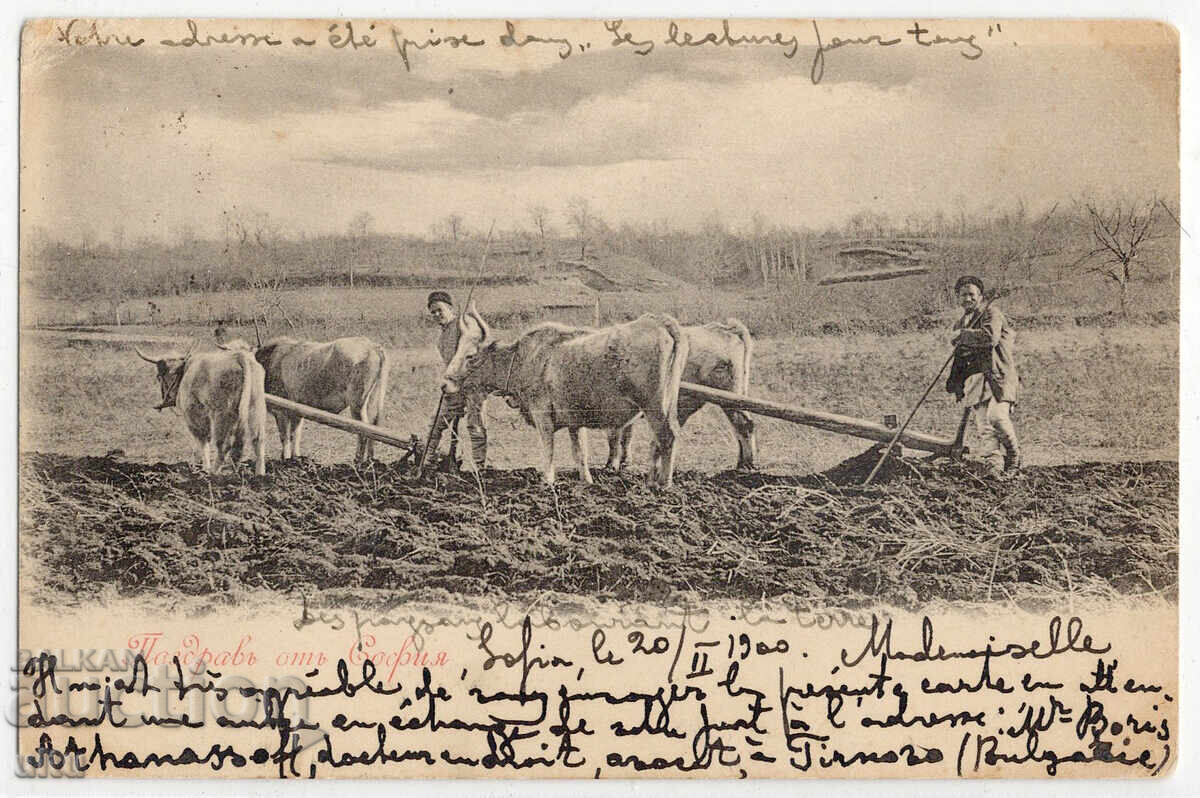 Votre adresse a été prise dans „Les lectures pour tous".
Les paysans labourant la terre
Поздравъ отъ София
Sofia, le 20/II 1900. Mademoiselle
Il m'est très agréable de vous envoyer la présente carte en atten-
dant une autre en échange de celle juste à l'adresse: Mr Boris
Athanassoff, docteur en droit, avocat, à Tirnovo (Bulgarie)
BALKAN
auction